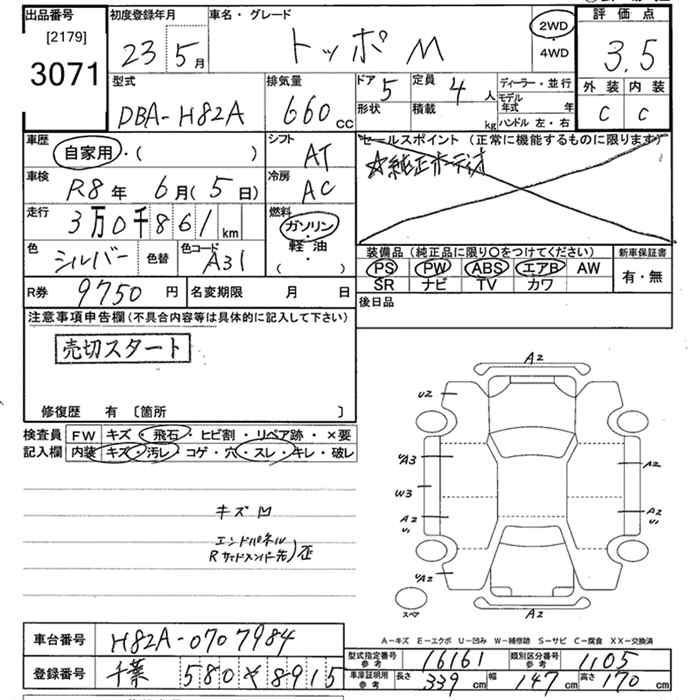 出品番号 [2179] 3071
初度登録年月 23 5月
車名・グレード トッポ M
2WD・4WD
評価点 3.5
外装 C 内装 C
型式 DBA-H82A
排気量 660cc
ドア 5 定員 4人
形状 積載 kg
ディーラー・並行
モデル年式 年
ハンドル 左・右
車歴 自家用・( )
シフト AT
セールスポイント (正常に機能するものに限ります)
☆純正オーディオ
車検 R8年 6月(5日)
冷房 AC
走行 3万0千861km
燃料 ガソリン・軽油 ( )
色 シルバー 色替 色コード A31
装備品(純正品に限り〇をつけてください) 新車保証書
PS PW ABS エアB AW 有・無
SR ナビ TV カワ
R券 9750円 名変期限 月 日
後日品
注意事項申告欄(不具合内容等は具体的に記入して下さい)
売切スタート
修復歴 有 〔箇所 〕
検査員記入欄 FW キズ・飛石・ヒビ割・リペア跡・×要
内装 キズ・汚レ・コゲ・穴・スレ・キレ・破レ
キズ凹
エンドパネル
Rサイドメンバー先)歪
A2
U2
UA3
A2
W3
A2
U1
A2
U1
UA2
A2
スペア
A-キズ E-エクボ U-凹み W-補修跡 S-サビ C-腐食 XX-交換済
車台番号 H82A-0707984
型式指定番号参考 16161 類別区分番号参考 1105
登録番号 千葉 580 そ 8915
車庫証明用参考 長さ 339cm 幅 147cm 高さ 170cm